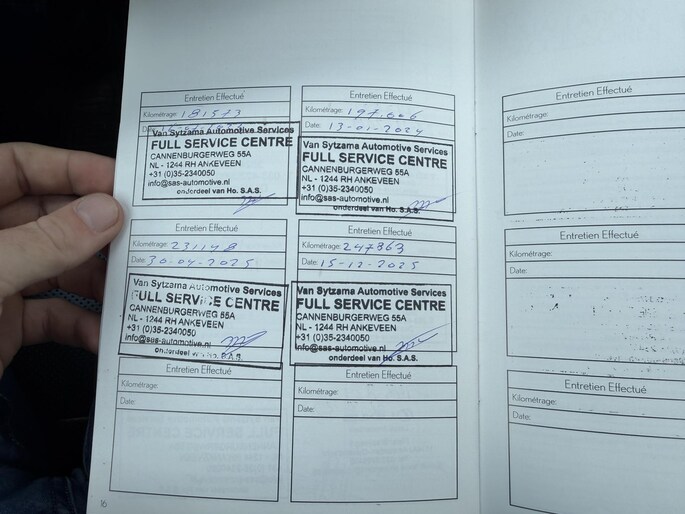 Entretien Effectué
Kilométrage: 181573
Date:
Van Sytzama Automotive Services
FULL SERVICE CENTRE
CANNENBURGERWEG 55A
NL - 1244 RH ANKEVEEN
+31 (0)35-2340050
info@sas-automotive.nl
onderdeel van Ho. S.A.S.
Entretien Effectué
Kilométrage: 197.606
Date: 13-01-2024
Van Sytzama Automotive Services
FULL SERVICE CENTRE
CANNENBURGERWEG 55A
NL - 1244 RH ANKEVEEN
+31 (0)35-2340050
info@sas-automotive.nl
onderdeel van Ho. S.A.S.
Entretien Effectué
Kilométrage: 231148
Date: 30-04-2025
Van Sytzama Automotive Services
FULL SERVICE CENTRE
CANNENBURGERWEG 55A
NL - 1244 RH ANKEVEEN
+31 (0)35-2340050
info@sas-automotive.nl
onderdeel van Ho. S.A.S.
Entretien Effectué
Kilométrage: 247863
Date: 15-12-2025
Van Sytzama Automotive Services
FULL SERVICE CENTRE
CANNENBURGERWEG 55A
NL - 1244 RH ANKEVEEN
+31 (0)35-2340050
info@sas-automotive.nl
onderdeel van Ho. S.A.S.
Entretien Effectué
Kilométrage:
Date:
Entretien Effectué
Kilométrage:
Date:
16
Entretien Effectué
Kilométrage:
Date:
Entretien Effectué
Kilométrage:
Date:
Entretien Effectué
Kilométrage:
Date: